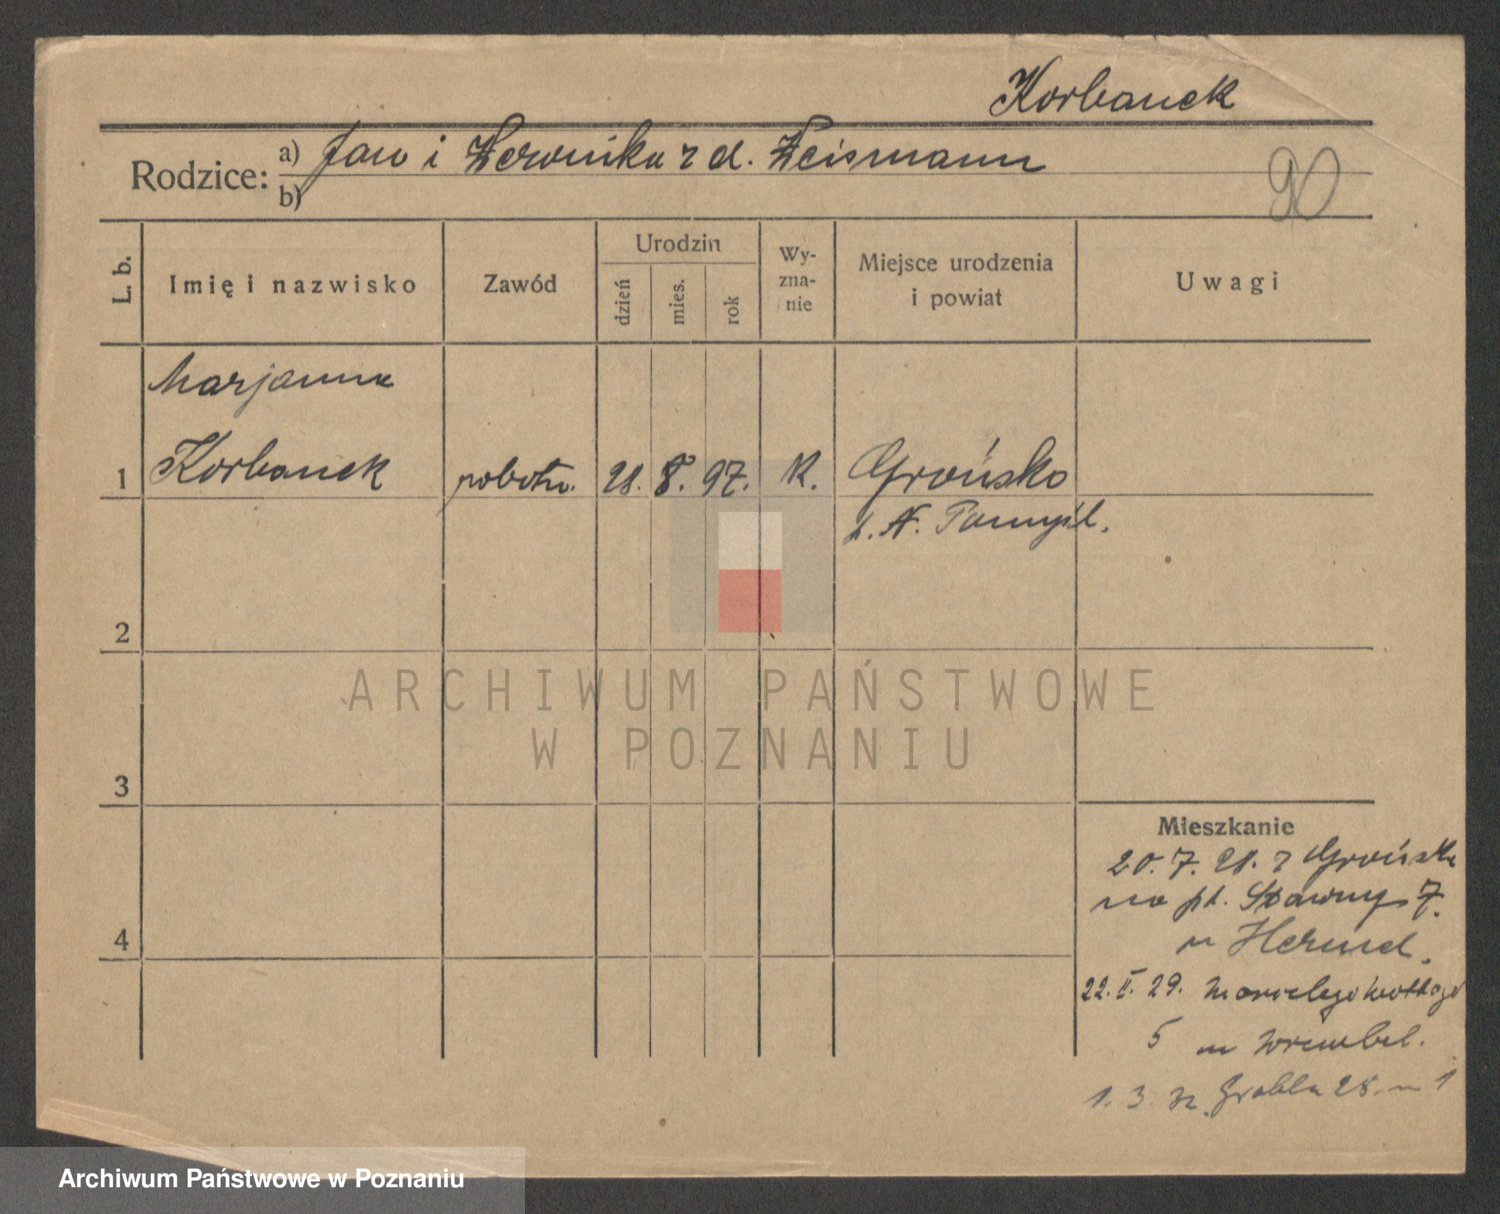 Korbanek
Rodzice: a) Jan i Weronika z d. Weismann
b)
90
L. b.
Imię i nazwisko
Zawód
Urodzin
dzień
mies.
rok
Wy-
zna-
nie
Miejsce urodzenia
i powiat
Uwagi
Marjanna
1 Korbanek robotn. 28. 8. 97. K. Grońsko
p. N. Tomyśl.
2
3
4
ARCHIWUM PAŃSTWOWE
W POZNANIU
Mieszkanie
20. 7. 28. z Grońska
na pl. 7.
u
22. 29. 
5 u Wrembel.
1. 3. Grobla 28. m 1
Archiwum Państwowe w Poznaniu